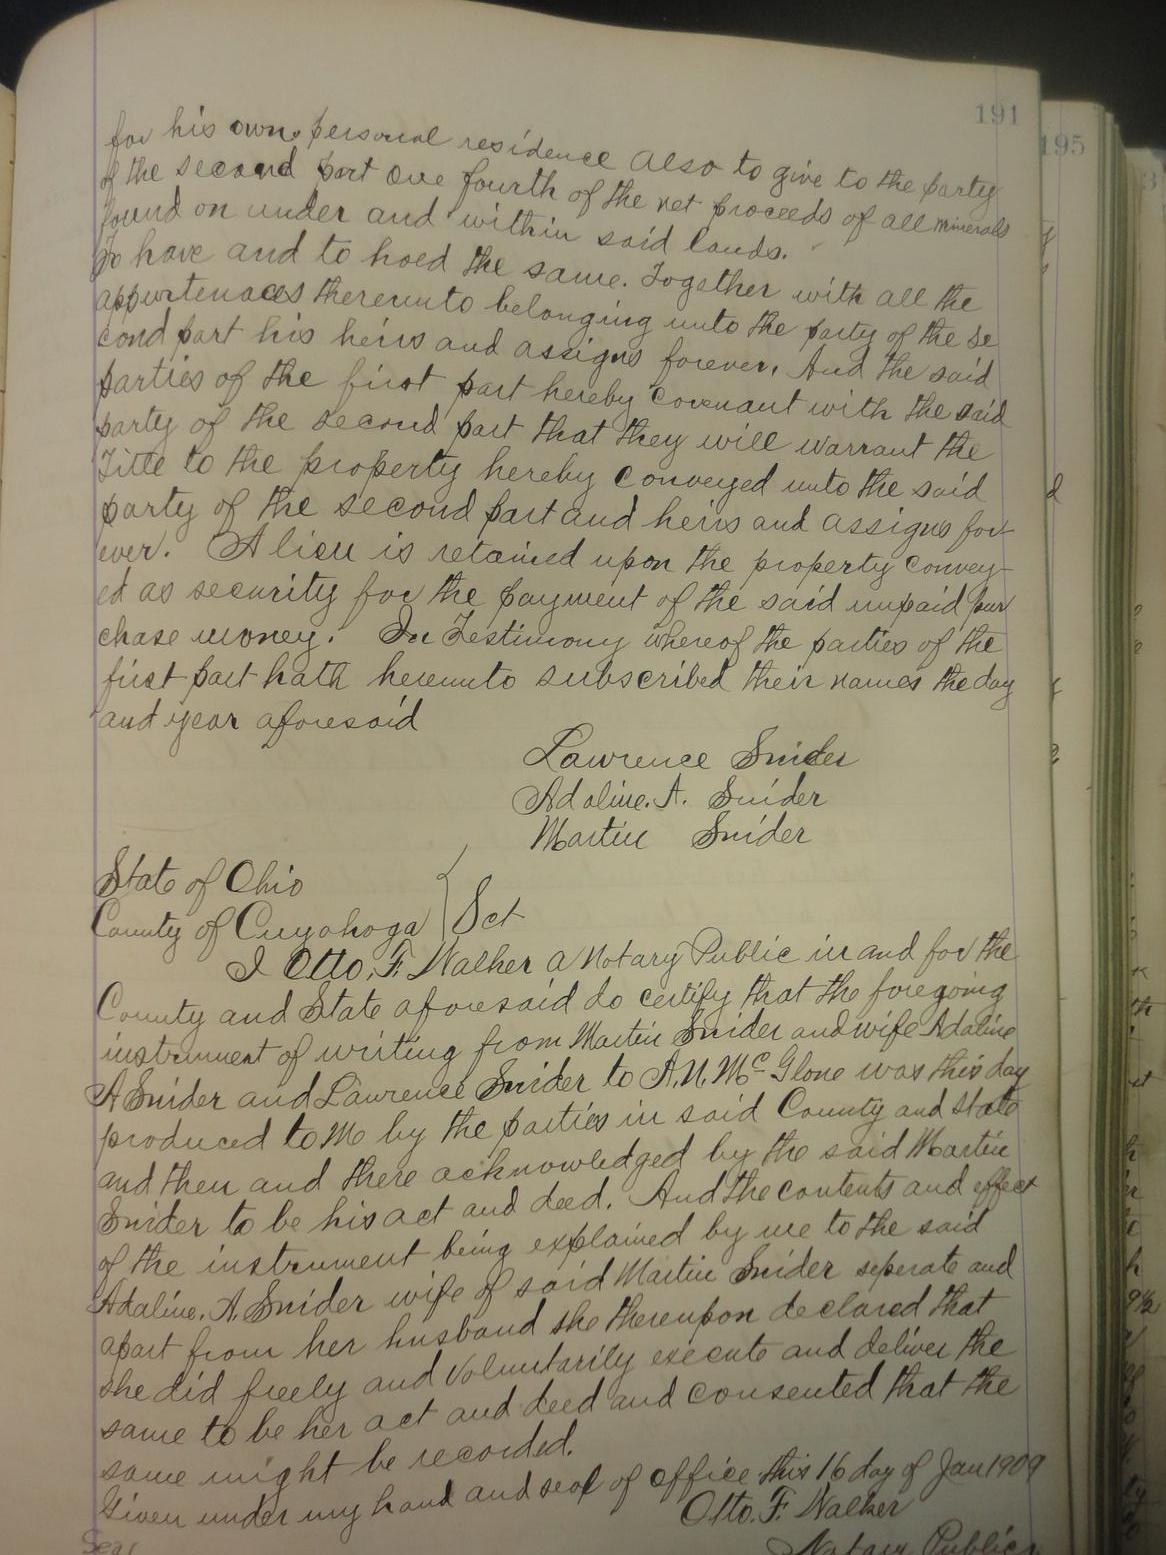 191
195
for his own personal residence also to give to the party
of the second part one fourth of the net proceeds of all minerals
found on under and within said lands.
To have and to hoed the same. Together with all the
appurtenaces thereunto belonging unto the party of the se
cond part his heirs and assigns forever, And the said
parties of the first part hereby covenant with the said
party of the second part that they will warrant the
Title to the property hereby conveyed unto the said
party of the second part and heirs and assigns for
ever. A lien is retained upon the property convey-
ed as security for the payment of the said unpaid pur
chase money. In Testimony whereof the parties of the
first part hath hereunto subscribed their names the day
and year aforesaid
Lawrence Snider
Adaline. A. Snider
Martin Snider
State of Ohio
County of Cuyahoga } Sct
I Otto. F. Walker a Notary Public in and for the
County and State aforesaid do certify that the foregoing
instrument of writing from Martin Snider and wife Adaline
A Snider and Lawrence Snider to A.N. McGlone was this day
produced to me by the parties in said County and State
and then and there acknowledged by the said Martin
Snider to be his act and deed. And the contents and effect
of the instrument being explained by me to the said
Adaline. A. Snider wife of said Martin Snider seperate and
apart from her husband she thereupon declared that
she did freely and Voluntarily execute and deliver the
same to be her act and deed and consented that the
same might be recorded.
Given under my hand and seal of office this 16 day of Jan 1909
Otto. F. Walker
Seal Notary Public